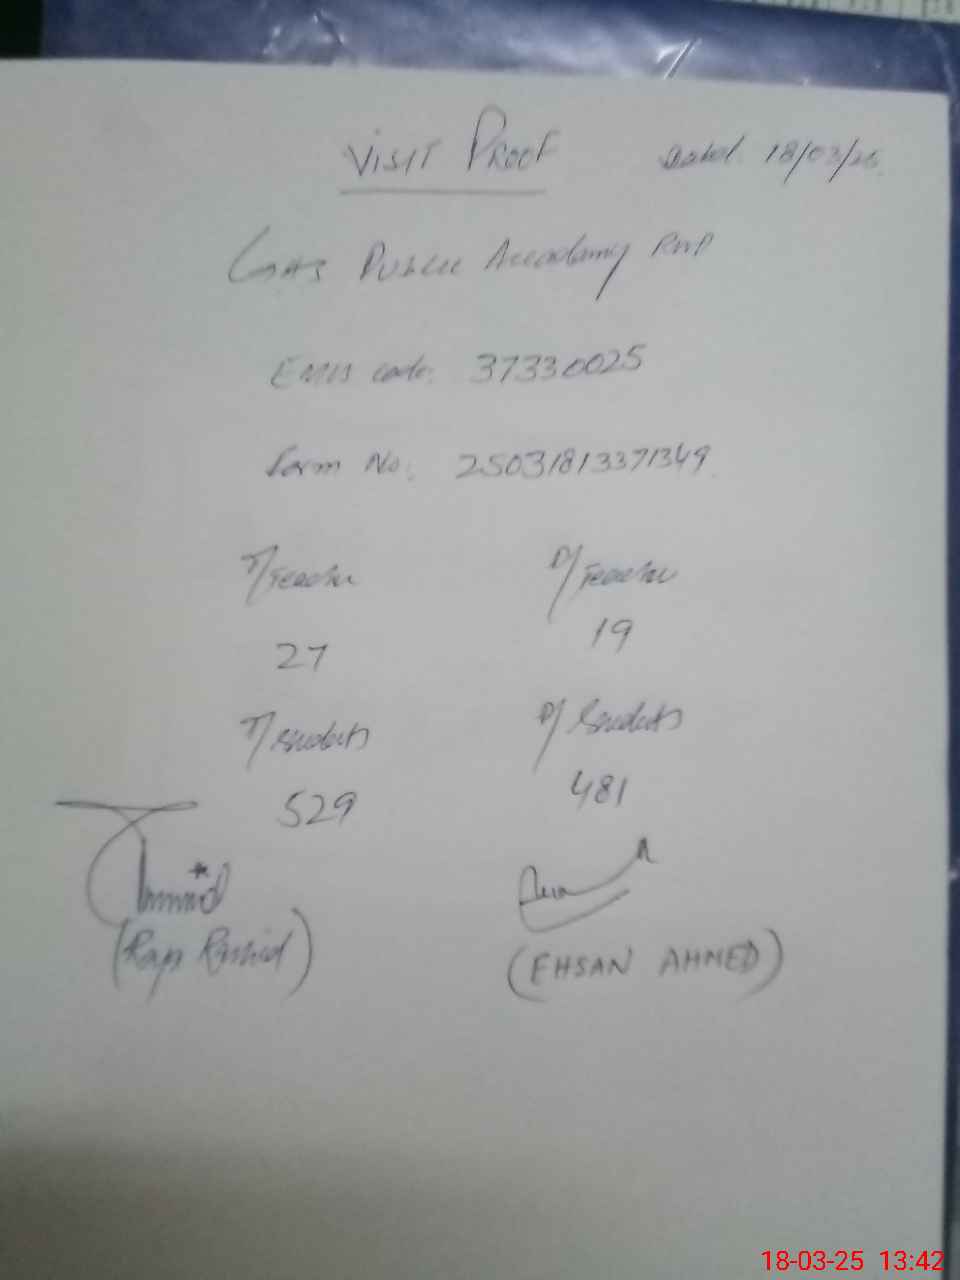 VISIT PROOF Dated 18/03/25.
Public Accadamy RWP
EMIS code: 37330025
Form No: 25031813371349
T/Teacher P/Teacher
27 19
T/Students P/Students
529 481
(Raja Rashid) (EHSAN AHMED)
18-03-25 13:42